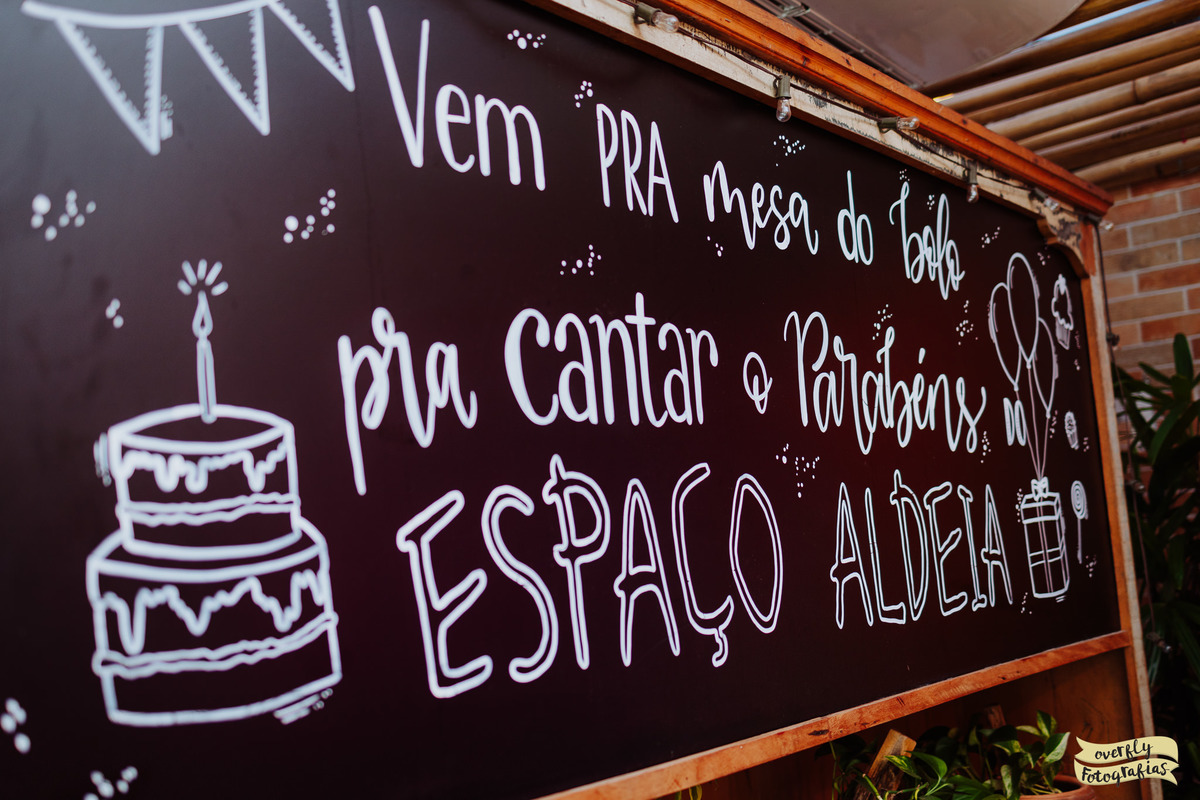 Vem PRA mesa do bolo
pra cantar o Parabéns DO
ESPAÇO ALDEIA
overfly
Fotografias